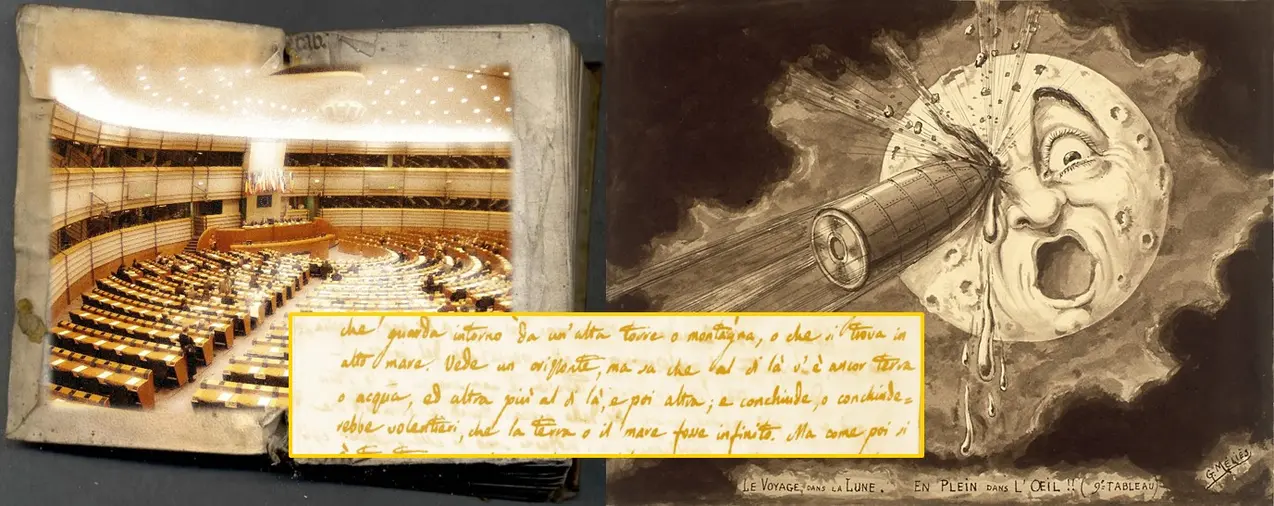 che guarda intorno da un'alta torre o montagna, o che si trova in
alto mare. Vede un orizzonte, ma sa che al di là v'è ancor terra
o acqua, ed altra più al di là, e poi altra; e conchiude, o conchiude=
rebbe volentieri, che la terra o il mare fosse infinito. Ma come poi si
G. MÉLIÈS
LE VOYAGE, DANS LA LUNE. EN PLEIN DANS L'OEIL !! (9e TABLEAU)